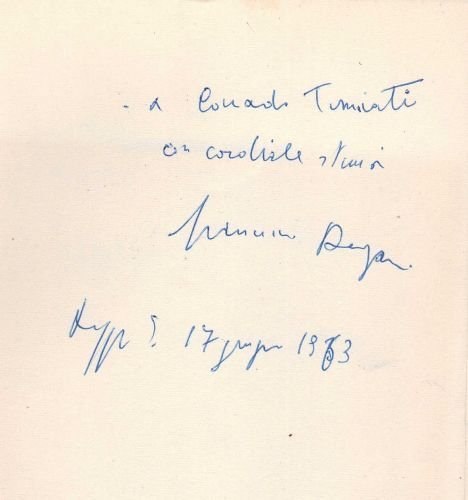 - a Corrado Tumiati
con cordiale stima
17 giugno 1963